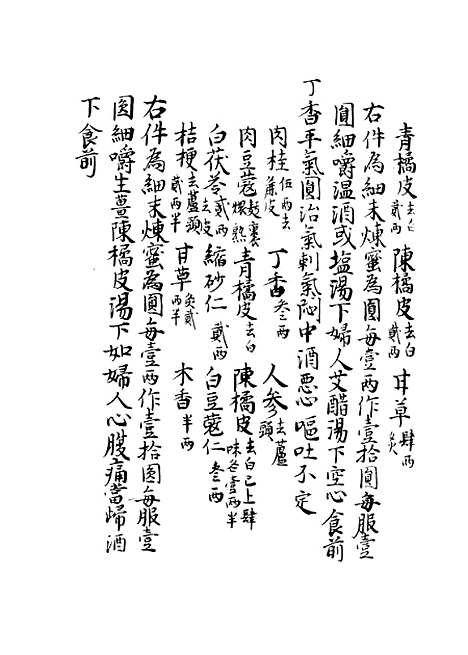 青橘皮去白貳兩 陳橘皮去白貳兩 甘草肆兩炙
右件為細末煉蜜為圓每壹兩作壹拾圓每服壹
圓細嚼温酒或塩湯下婦人艾醋湯下空心食前
丁香平氣圓治氣刺氣悶中酒惡心嘔吐不定
肉桂伍兩去麄皮 丁香叁兩 人參去蘆頭
肉豆蔻麪裹煨熟 青橘皮去白 陳橘皮去白已上肆味各壹兩半
白茯苓去皮貳兩 縮砂仁貳兩 白豆蔻仁叁兩
桔梗去蘆頭貳兩半 甘草炙貳兩半 木香半兩
右件為細末煉蜜為圓每壹兩作壹拾圓每服壹
圓細嚼生薑陳橘皮湯下如婦人心腹痛當歸酒
下食前